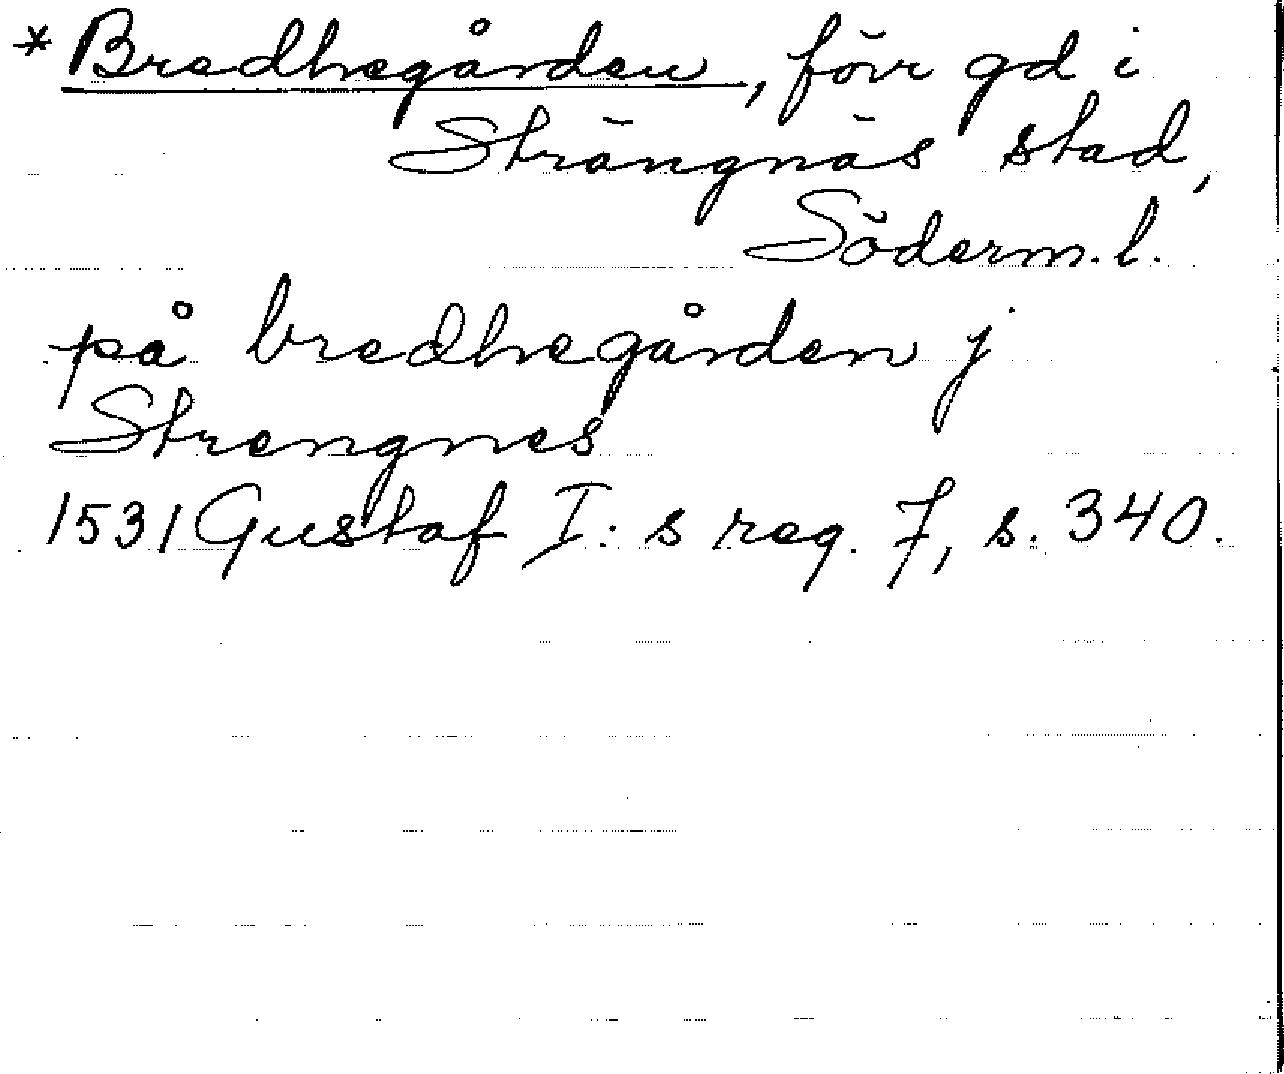 * Bredhegården, förr gd i
Strängnäs stad,
Söderm. l.
på bredhegården j
Strengnes
1531 Gustaf I: s reg. 7, s. 340.